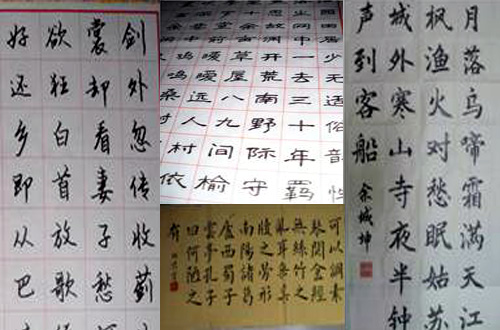 剑外忽传收蓟
裳却看妻子愁
欲狂白首放歌
好还乡即从巴
田居少无适俗韵性
网中一去三十年羁
故渊开荒南野际守
草屋八九间榆
堂前暧暧远人村依
可以調素
琴閱金經
無絲竹之
亂耳無案
牘之勞形
南陽諸葛
廬西蜀子
雲亭孔子
曰何陋之
有
月落乌啼霜满天江
枫渔火对愁眠姑苏
城外寒山寺夜半钟
声到客船
余城坤